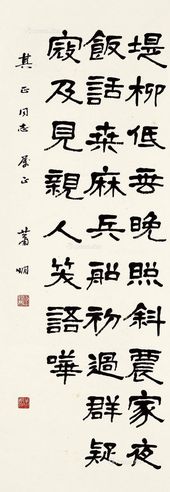 堤柳低垂晚照斜農家夜
飯話桑麻兵船初過群疑
寇及見親人笑語嘩
其正同志 属正 蕭嫻